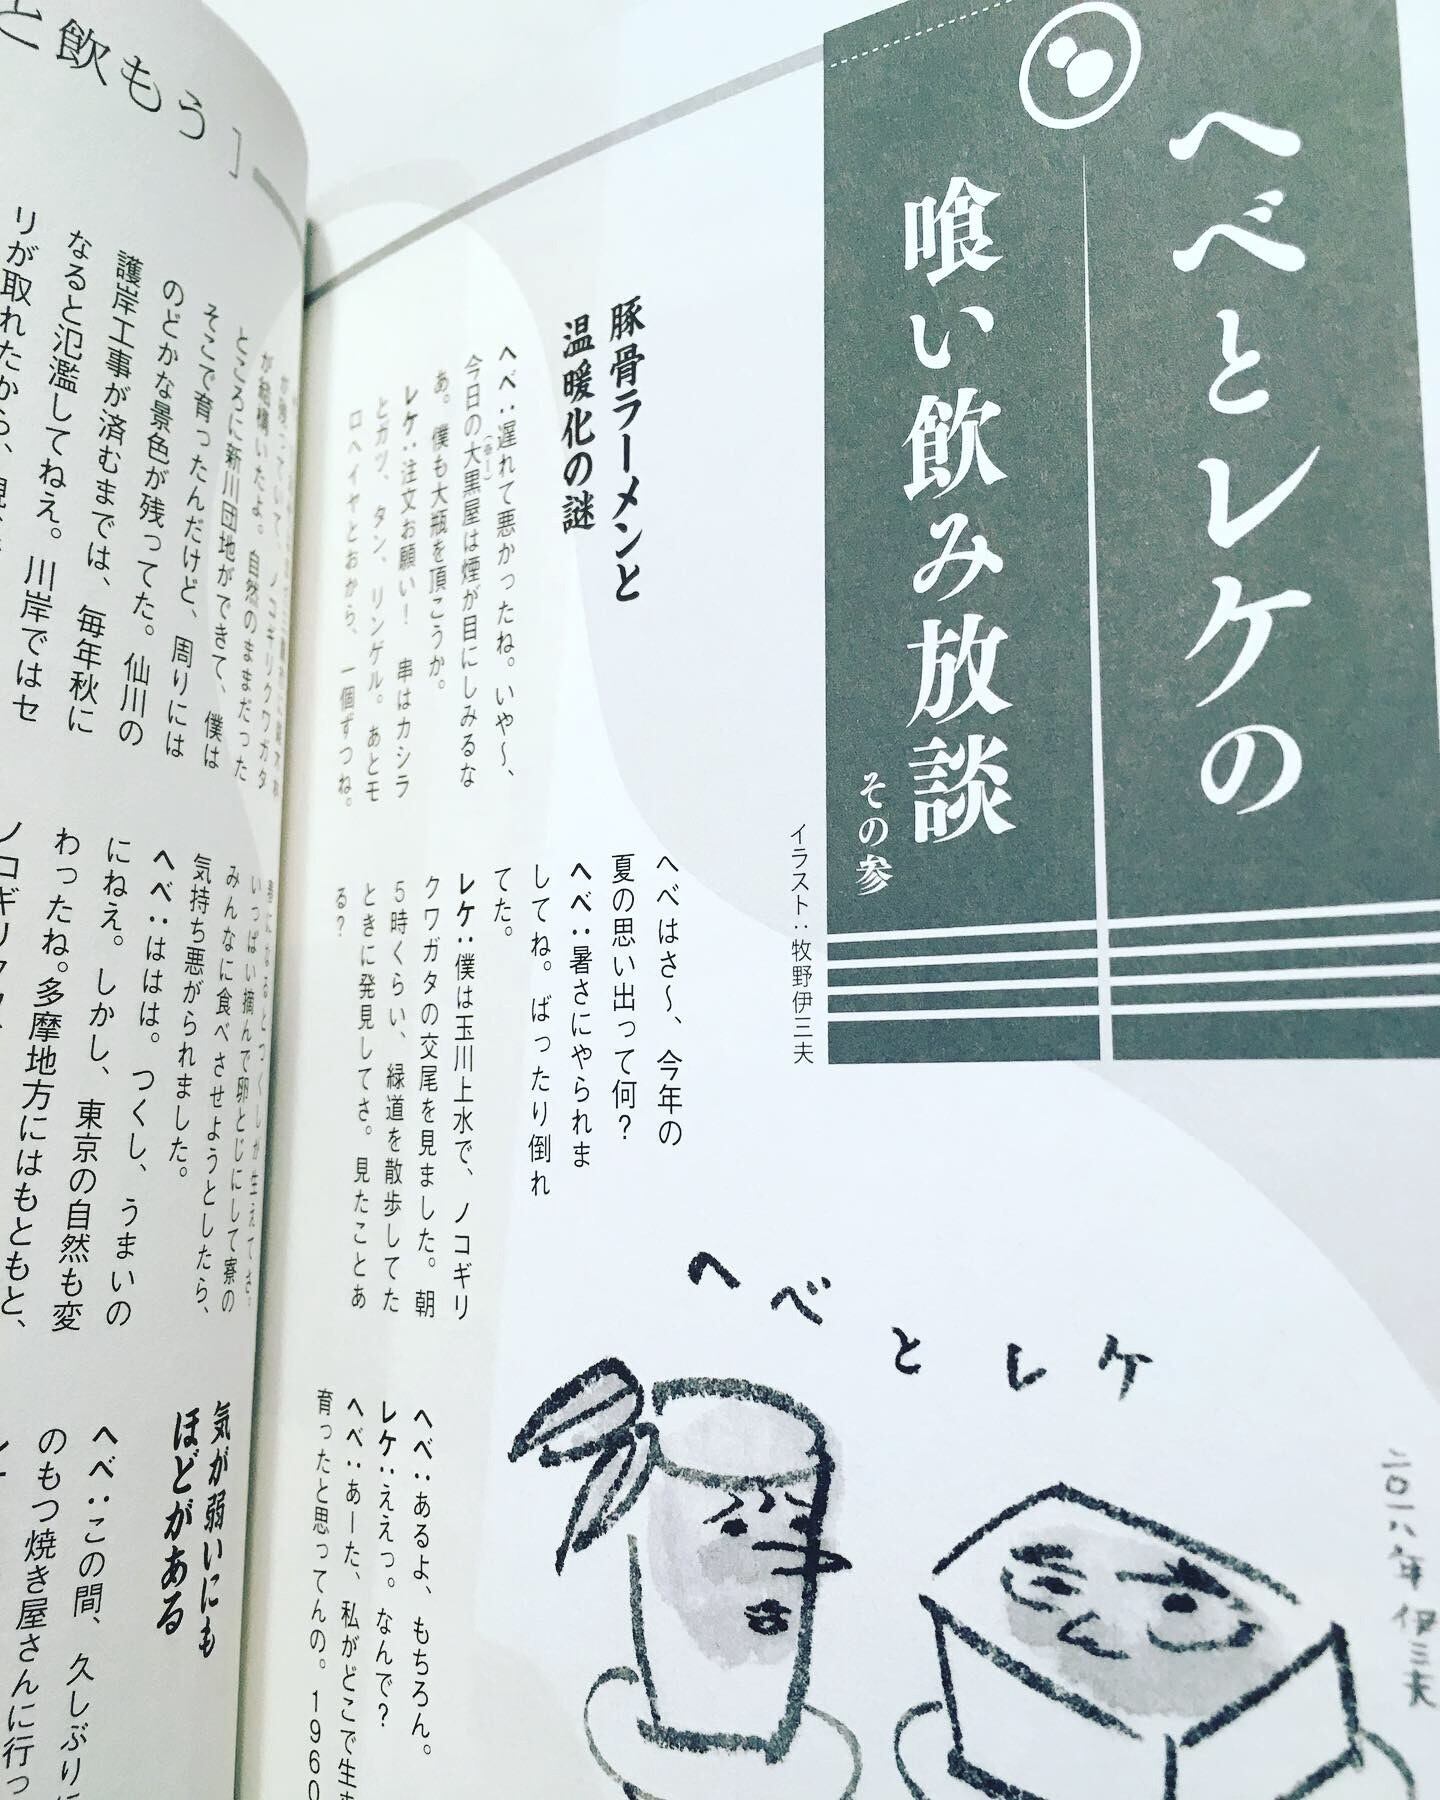 と飲もう］
へべとレケの
喰い飲み放談
その参
イラスト：牧野伊三夫
豚骨ラーメンと
温暖化の謎
ヘベ：遅れて悪かったね。いや〜、
今日の大黒屋は煙が目にしみるな
あ。僕も大瓶を頂こうか。
レケ：注文お願い！　串はカシラ
とガツ、タン、リンゲル。あとモ
ロヘイヤとおから、一個ずつね。
ヘベはさ〜、今年の
夏の思い出って何？
ヘベ：暑さにやられま
してね。ばったり倒れ
てた。
レケ：僕は玉川上水で、ノコギリ
クワガタの交尾を見ました。朝
5時くらい、緑道を散歩してた
ときに発見してさ。見たことあ
る？
ヘベ：あるよ、もちろん。
レケ：ええっ。なんで？
ヘベ：あーた、私がどこで生ま
育ったと思ってんの。1960
ヘベとレケ
二〇一八年 伊三夫
ノコギリクワガタ
が結構いたよ。自然のままだった
ところに新川団地ができて、僕は
そこで育ったんだけど、周りには
のどかな景色が残ってた。仙川の
護岸工事が済むまでは、毎年秋に
なると氾濫してねえ。川岸ではセ
リが取れたから、
春になるとつくしが生えてさ。
いっぱい摘んで卵とじにして寮の
みんなに食べさせようとしたら、
気持ち悪がられました。
ヘベ：ははは。つくし、うまいの
にねえ。しかし、東京の自然も変
わったね。多摩地方にはもともと、
気が弱いにも
ほどがある
ヘベ：この間、久しぶりに
のもつ焼き屋さんに行っ